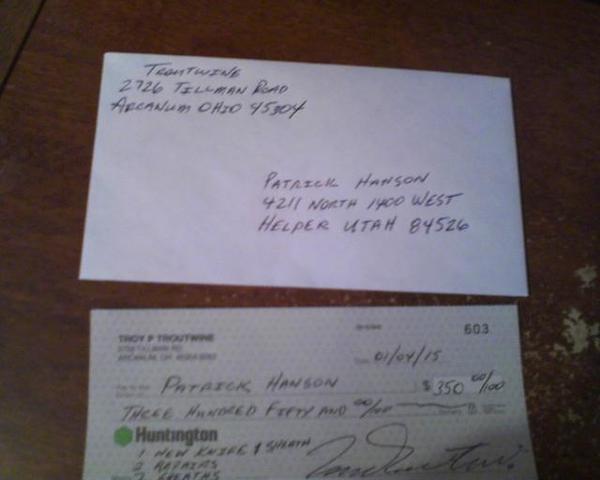 Troutwine
2726 Tillman Road
Arcanum Ohio 45304
Patrick Hanson
4211 North 1400 West
Helper Utah 84526
TROY P TROUTWINE
2726 TILLMAN RD
ARCANUM, OH
603
01/04/15
Patrick Hanson $ 350 00/100
Three Hundred Fifty and 00/100
Huntington
1 New Knife & Sheath
2 Repairs
2 Sheaths